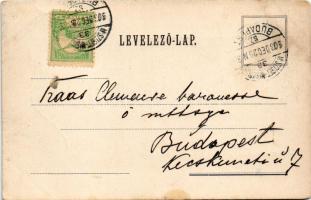 LEVELEZŐ-LAP.
BUDAPEST
903 DEC 26
Kraas Clemence baronesse
ő mltsga
Budapest
Kecskeméti u 7